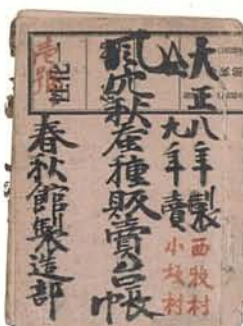 大正八年製
九年賣
西牧村
小坂村
風穴秋蚕種販賣台帳
壱號
春秋館製造部